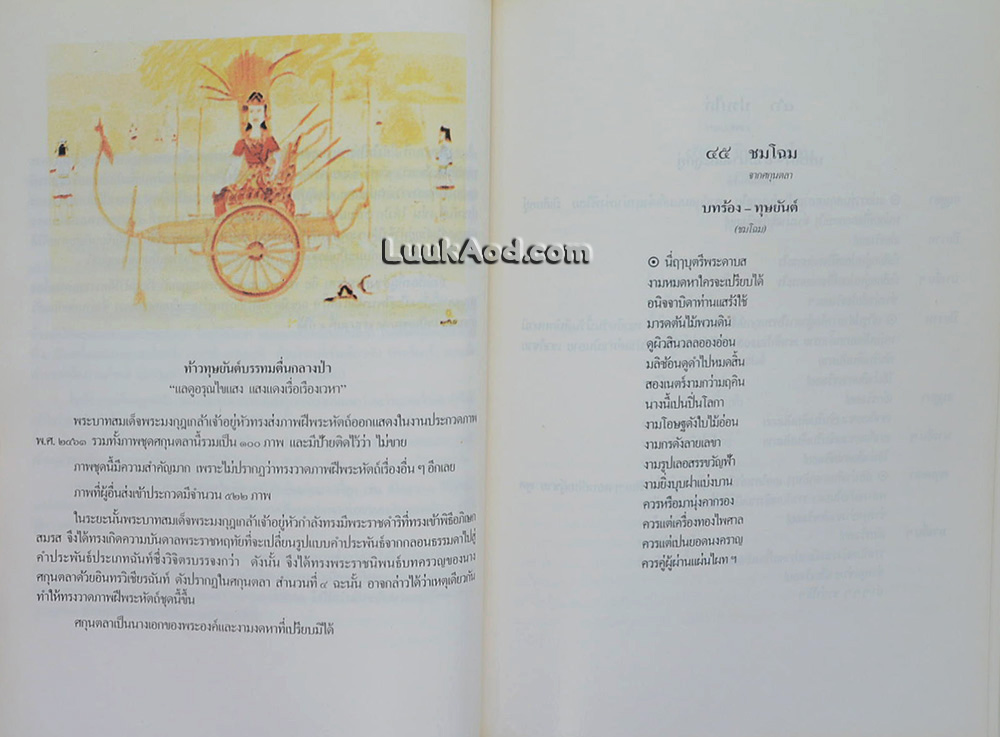 LuukAod.com
ท้าวทุษยันต์บรรทมตื่นกลางป่า
“แลดูอรุณไขแสง แสงแดงเรื่อเรืองเวหา”
พระบาทสมเด็จพระมงกุฎเกล้าเจ้าอยู่หัวทรงส่งภาพฝีพระหัตถ์ออกแสดงในงานประกวดภาพ
พ.ศ. ๒๔๖๓ รวมทั้งภาพชุดศกุนตลานี้รวมเป็น ๑๐๐ ภาพ และมีป้ายติดไว้ว่า ไม่ขาย
ภาพชุดนี้มีความสำคัญมาก เพราะไม่ปรากฏว่าทรงวาดภาพฝีพระหัตถ์เรื่องอื่น ๆ อีกเลย
ภาพที่ผู้อื่นส่งเข้าประกวดมีจำนวน ๕๒๒ ภาพ
ในระยะนั้นพระบาทสมเด็จพระมงกุฎเกล้าเจ้าอยู่หัวกำลังทรงมีพระราชดำริที่ทรงเข้าพิธีอภิเษก
สมรส จึงได้ทรงเกิดความบันดาลพระราชหฤทัยที่จะเปลี่ยนรูปแบบคำประพันธ์จากกลอนธรรมดาไปสู่
คำประพันธ์ประเภทฉันท์ซึ่งวิจิตรบรรจงกว่า ดังนั้น จึงได้ทรงพระราชนิพนธ์บทครวญของนาง
ศกุนตลาด้วยอินทรวิเชียรฉันท์ ดังปรากฏในศกุนตลา สำนวนที่ ๔ ฉะนั้น อาจกล่าวได้ว่าเหตุเดียวกัน
ทำให้ทรงวาดภาพฝีพระหัตถ์ชุดนี้ขึ้น
ศกุนตลาเป็นนางเอกของพระองค์และงามงดหาที่เปรียบมิได้
๔๕ ชมโฉม
จากศกุนตลา
บทร้อง – ทุษยันต์
(ชมโฉม)
๏ นี่ฤๅบุตรีพระดาบส
งามหมดหาใครจะเปรียบได้
อนิจจาบิดาท่านแสร้งใช้
มารดต้นไม้พวนดิน
ดูผิวสินวลลอองอ่อน
มลิซ้อนดูดำไปหมดสิ้น
สองเนตร์งามกว่ามฤคิน
นางนี้เปนปิ่นโลกา
งามโอษฐดังใบไม้อ่อน
งามกรดังลายเลขา
งามรูปเลอสรรขวัญฟ้า
งามยิ่งบุบผาแบ่งบาน
ควรหรือมานุ่งคากรอง
ควรแต่เครื่องทองไพศาล
ควรแต่เปนยอดนงคราญ
ควรคู่ผู้ผ่านแผ่นไผท ฯ